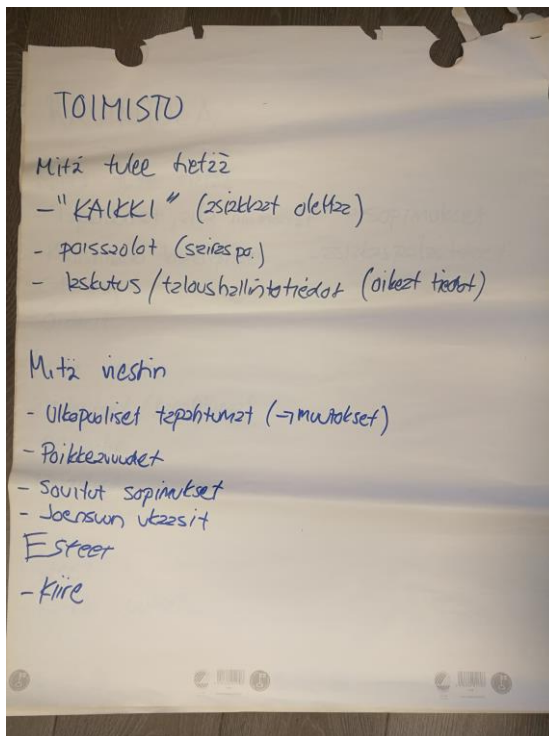 TOIMISTO
Mitä tulee tietää
- "KAIKKI" (asiakkaat olettaa)
- poissaolot (sairaspo.)
- laskutus / taloushallintotiedot (oikeat tiedot)
Mitä viestin
- Ulkopuoliset tapahtumat (→ muutokset)
- Poikkeavuudet
- Sovitut sopimukset
- Joensuun vaasit
Esteet
- Kiire